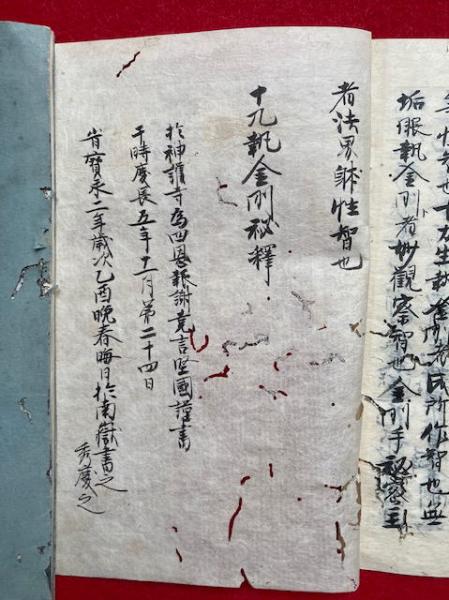 執金剛者成所作智也無
垢眼執金剛者妙觀察智也金剛手秘密主
者法界躰性智也
十九執金剛秘釋
於神護寺為四恩報謝竟言堅國謹書
于時慶長五年十一月第二十四日
旹寳永二年歳次乙酉晩春晦日於南嶽書之
秀慶之